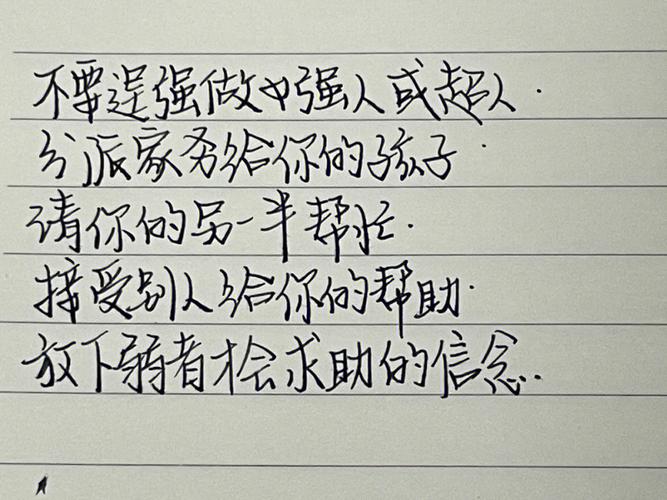 不要逞强做女强人或超人.
分派家务给你的孩子.
请你的另一半帮忙.
接受别人给你的帮助.
放下弱者才会求助的信念.